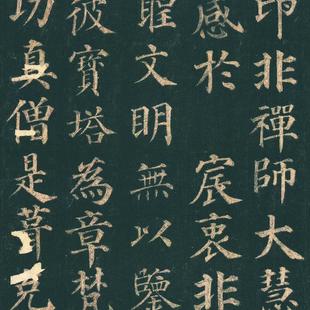 印非禪師大慧
感於 宸衷非
聖文明無以鑒
彼寶塔為章梵
功真僧是葺克